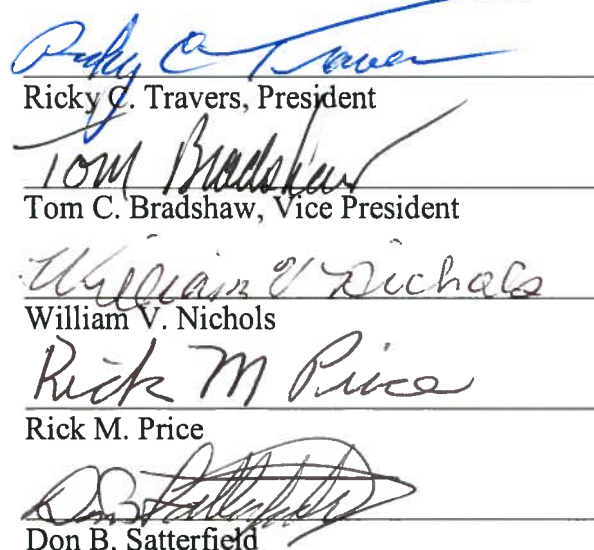 Ricky C Travers
Ricky C. Travers, President
Tom Bradshaw
Tom C. Bradshaw, Vice President
William V Nichols
William V. Nichols
Rick M Price
Rick M. Price
Don B Satterfield
Don B. Satterfield